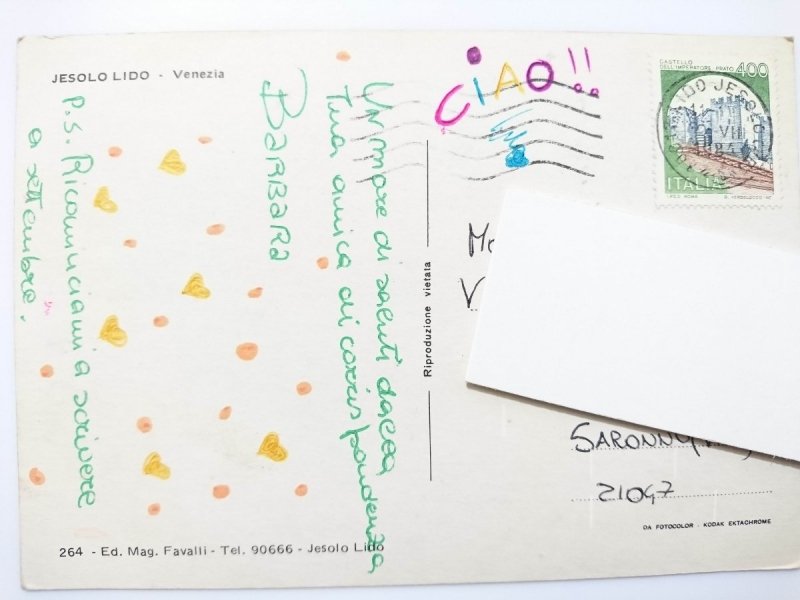 JESOLO LIDO - Venezia
CIAO!!
CASTELLO
DELL'IMPERATORE PRATO 400
ITALIA
I.P.Z.S. ROMA
LIDO JESOLO
VII
84
Un mare di saluti dalla
tua amica di corrispondenza
BARBARA
P.S. Ricominciami a scrivere
a settembre.
Riproduzione vietata
SARONNO
21047
DA FOTOCOLOR - KODAK EKTACHROME
264 - Ed. Mag. Favalli - Tel. 90666 - Jesolo Lido